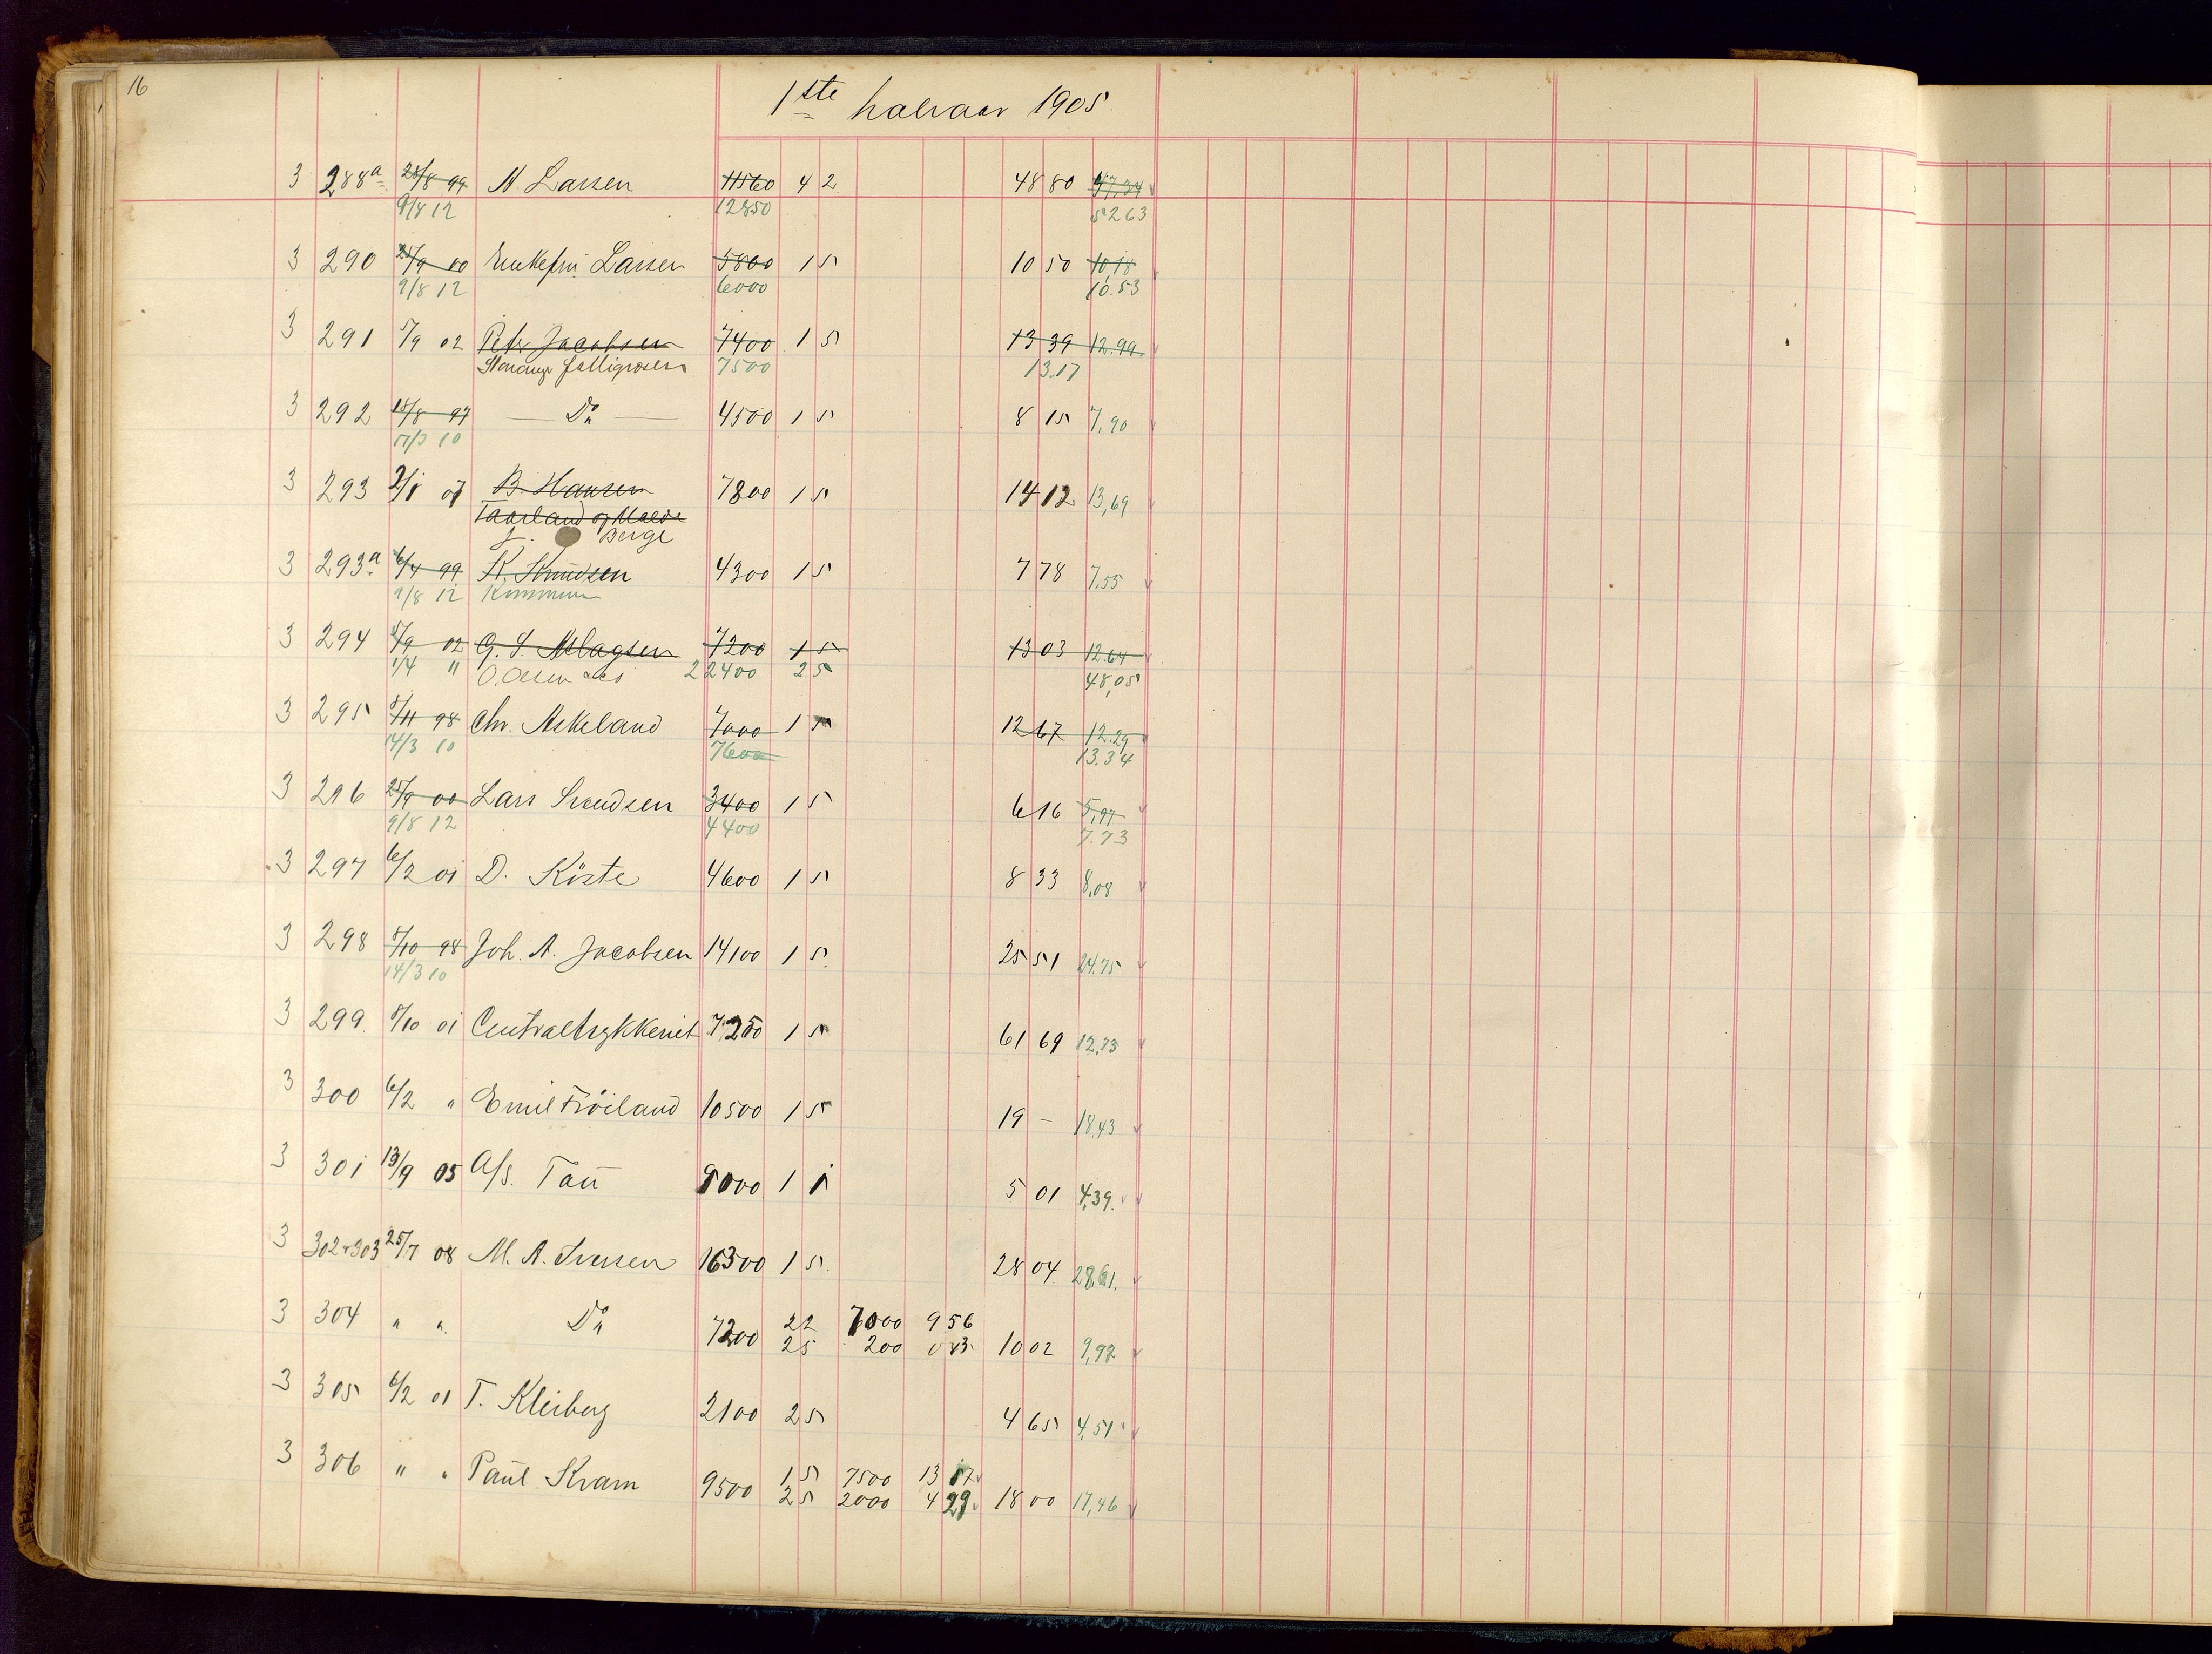 16
1ste halvaar 1905.
3 288a 25/8 99 N. Larsen 11560 4 2 48 80 47,34
9/8 12 12850 5263
3 290 25/9 00 Enkefru Larsen 5800 1 5 10 50 10,18
9/8 12 6000 10.53
3 291 5/9 02 Petr Jacobsen 7400 1 5 13 39 12.99
7500 13.17
3 292 18/8 97 Do 4500 1 5 8 15 7,90
17/3 10
3 293 2/1 07 B. Hansen 7800 1 5 14 12 13,69
Taarland og Malde
J. Berge
3 293a 6/4 99 K. Knudsen 4300 1 5 7 78 7,55
9/8 12 Kommunen
3 294 5/9 02 G. S. Aslagsen 7200 1 5 13 03 12.64
1/4 " O. Olsen & Co 22400 2 5 48,05
3 295 5/11 98 Chr. Askeland 7000 1 5 12 67 12.29
14/3 10 7600 13.34
3 296 25/9 00 Lars Svendsen 3400 1 5 6 16 5,97
9/8 12 4400 7.73
3 297 6/2 01 D. Köste 4600 1 5 8 33 8,08
3 298 5/10 98 Joh. A. Jacobsen 14100 1 5 25 51 24.75
14/3 10
3 299 5/10 01 Centraltrykkeriet 7250 1 5 61 69 12,73
3 300 6/2 " Emil Fröiland 10500 1 5 19 — 18,43
3 301 13/9 05 A/s. Tau 5000 1 1 5 01 4,39.
3 302+303 25/7 08 M. A. Iversen 16300 1 5 28 04 28,61.
3 304 " " Do 7200 22 7000 9 56
25 200 0 43 10 02 9,92
3 305 6/2 01 T. Kleiberg 2100 2 5 4 65 4,51
3 306 " " Paul Kvam 9500 1 5 7500 13 17
2 5 2000 4 29 18 00 17,46